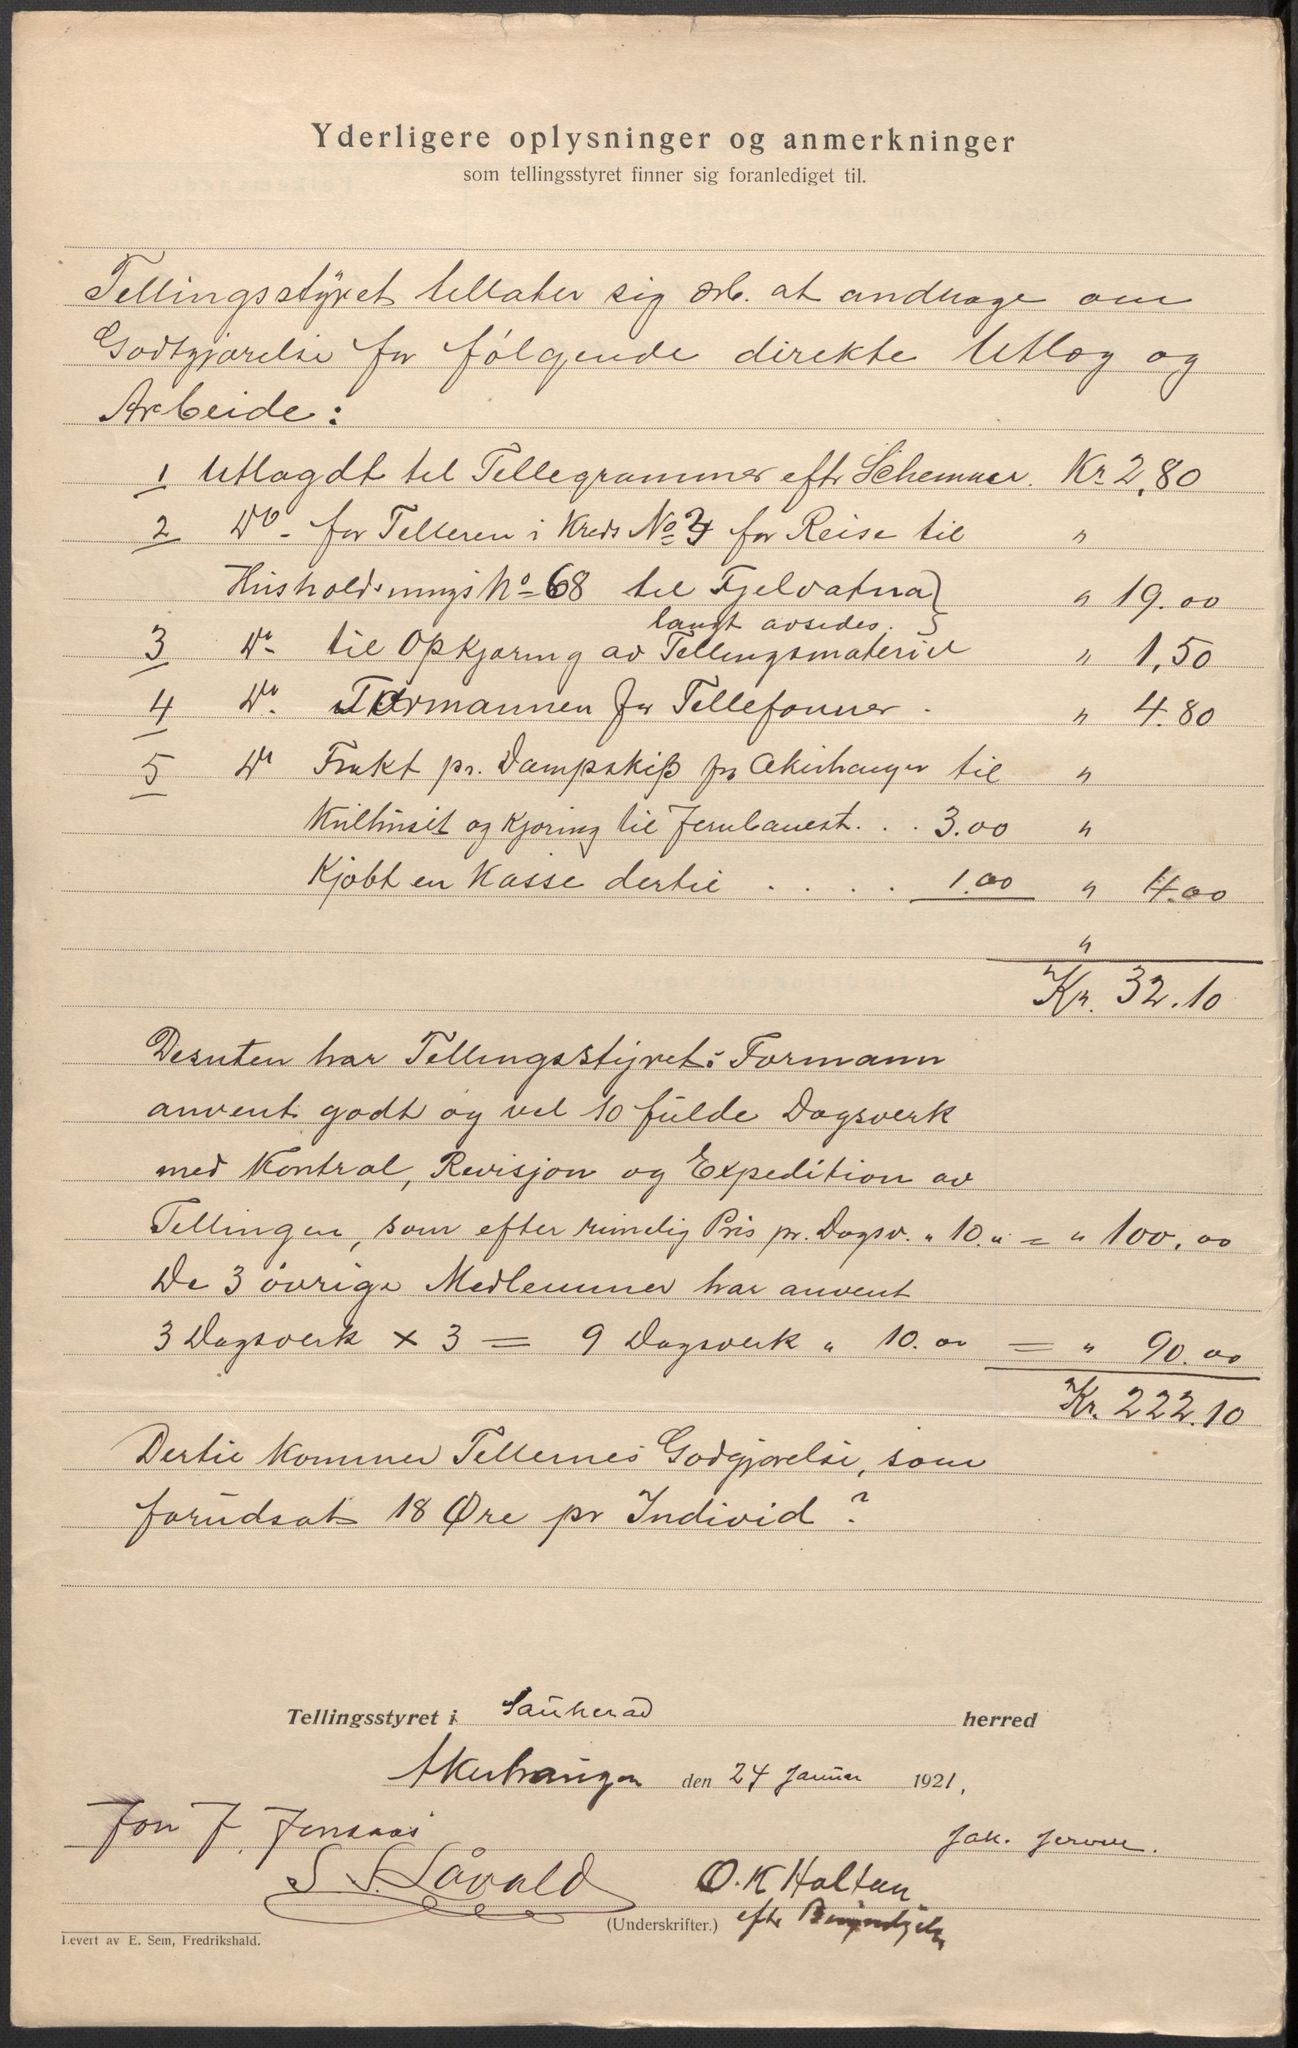 Yderligere oplysninger og anmerkninger
som tellingsstyret finner sig foranlediget til.
Tellingsstyret tillater sig ærb. at andrage om
Godtgjørelse for følgende direkte Utlæg og
Arbeide:
1 Utlagdt til Tellegrammer efter Schemaer. Kr 2,80
2 Do - for Telleren i Kreds No 4 for Reise til "
Husholdningsno 68 til Fjelvatna } " 19.00
langt avsides.
3 Do til Opkjøring av Tellingsmateriel " 1,50
4 Do. Formannen for Tellefonner . " 4.80
5 Do Frakt pr. Dampskib fra Akerhaugen til "
Kulhuset og Kjøring til Jernbanest. . . 3.00 "
Kjøbt en Kasse dertil . . . . 1.00 " 4.00
"
Kr. 32.10
Desuten har Tellingsstyrets Formann
anvent godt og vel 10 fulde Dagsverk
med Kontrol, Revisjon og Expedition av
Tellingen, som efter rimelig Pris pr. Dagsv. " 10." = " 100.00
De 3 øvrige Medlemmer har anvent
3 Dagsverk × 3 = 9 Dagsverk " 10.00 = " 90.00
Kr. 222.10
Dertil kommer Tellernes Godgjørelse, som
forudsat 18 Øre pr Individ?
Tellingsstyret i Sauherad herred
Akerhaugen den 24 Januar 1921.
Jon J. Jonsaas
Jak. Jerven.
S. S. Såvald
O. K Haltan
(Underskrifter.) efter
Levert av E. Sem, Fredrikshald.